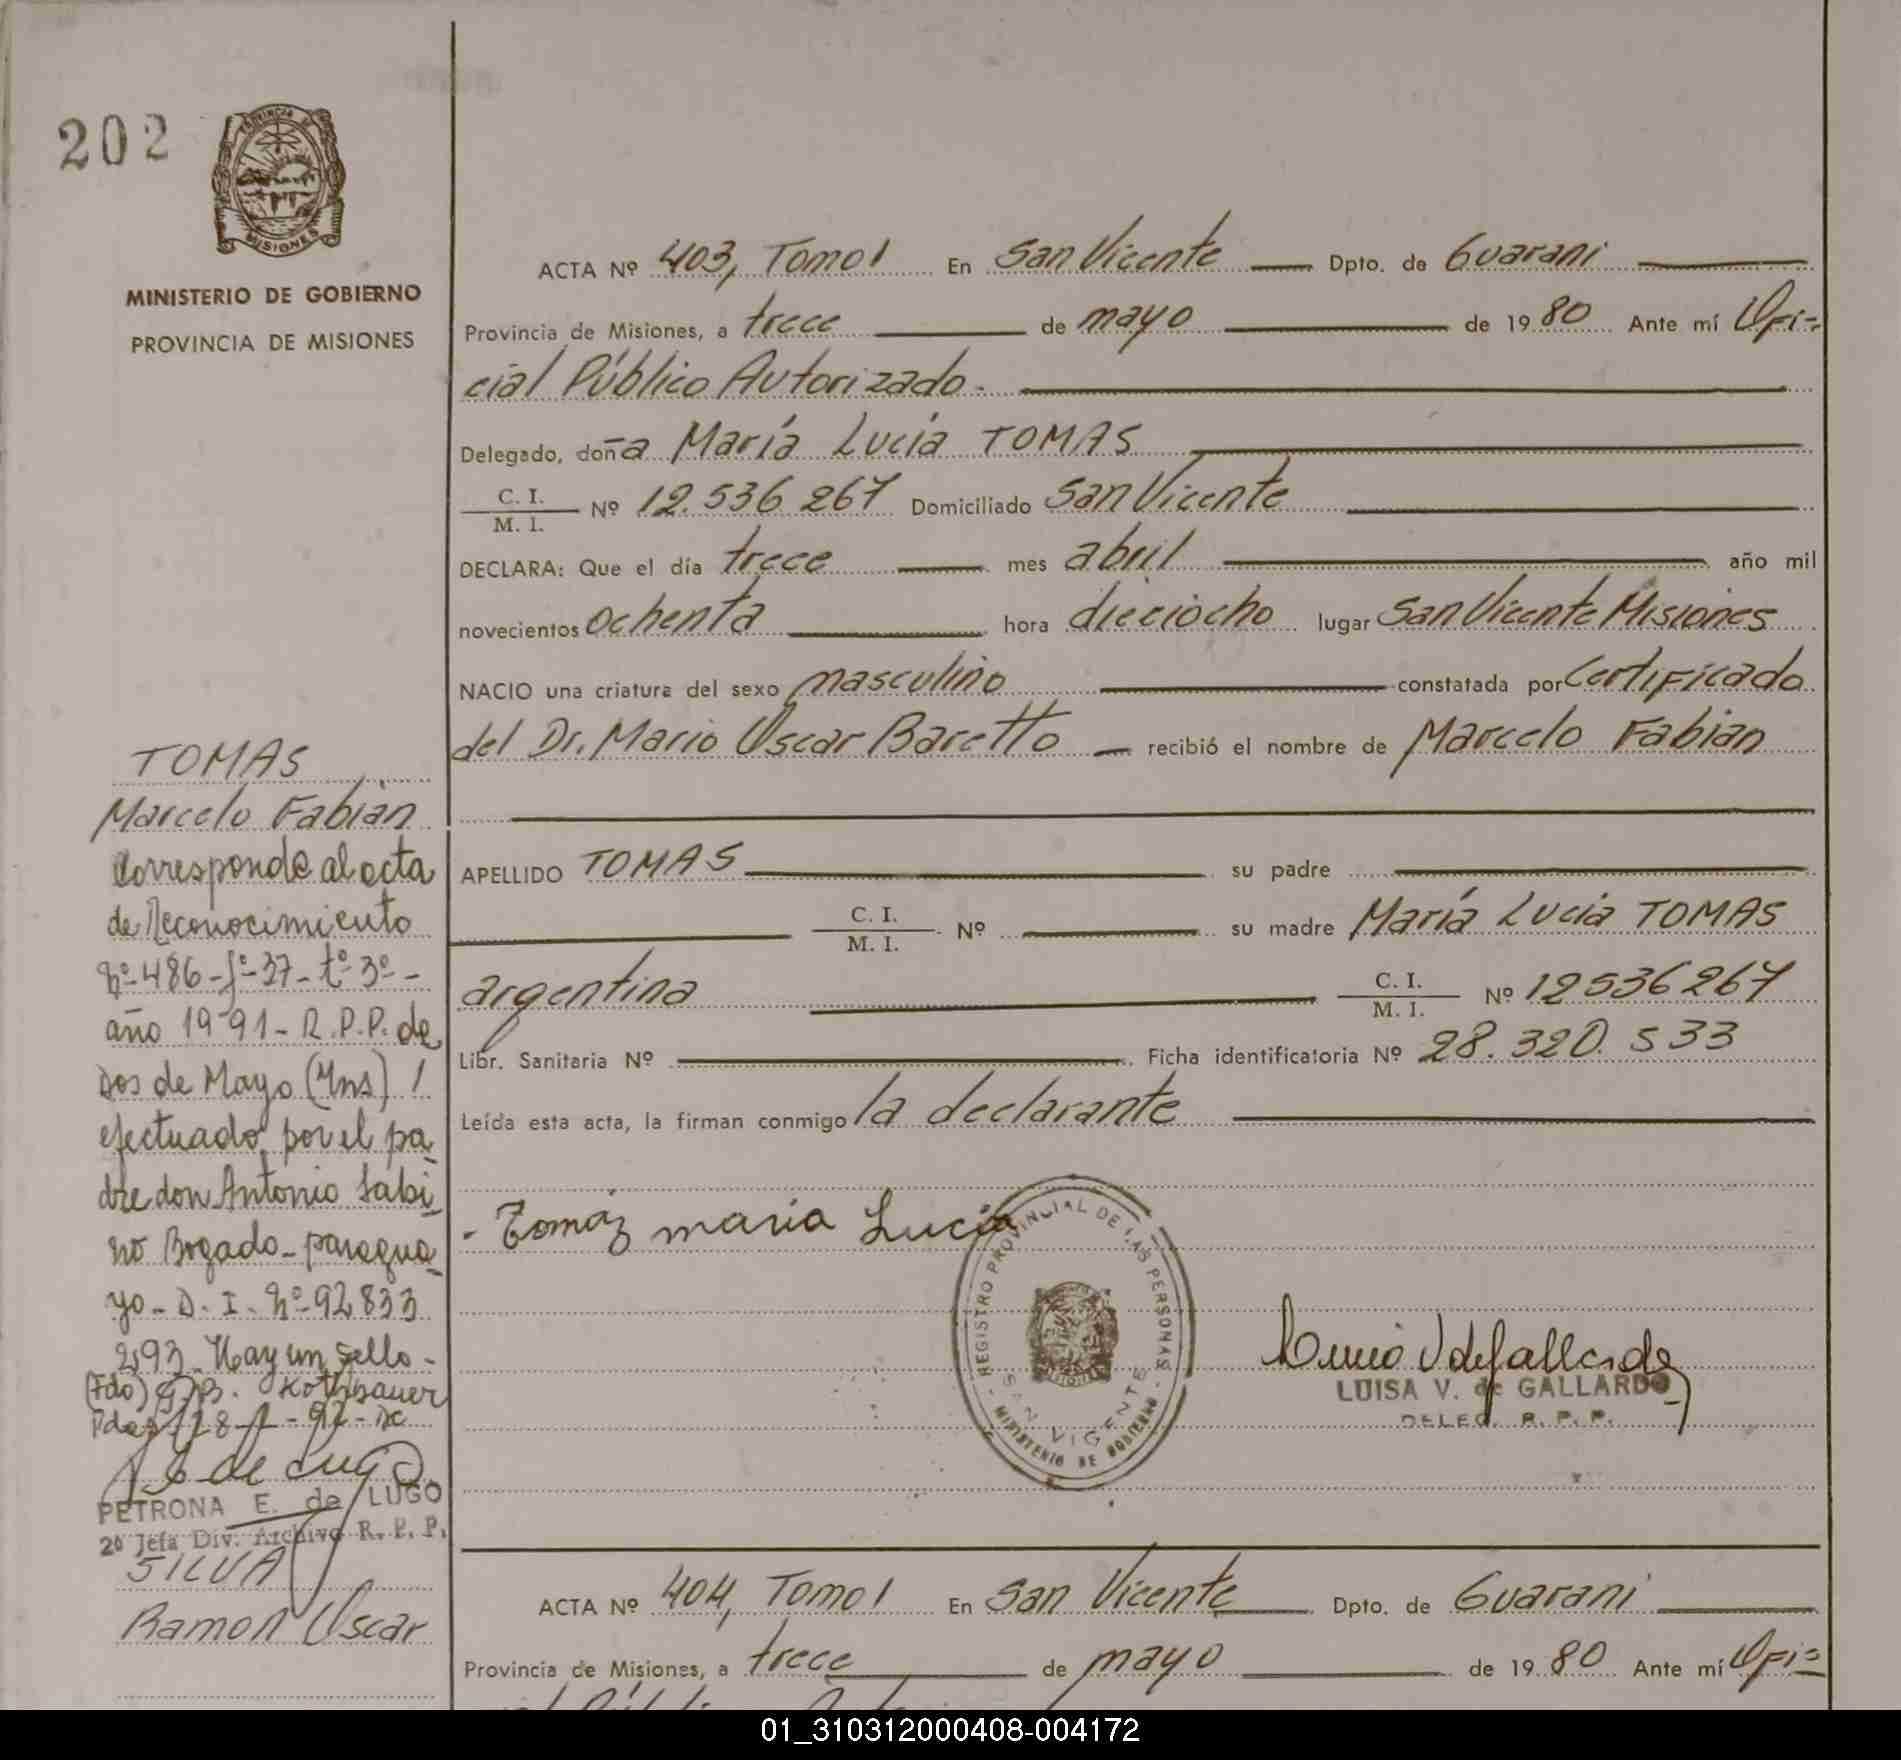 202
PROVINCIA DE
MISIONES
MINISTERIO DE GOBIERNO
PROVINCIA DE MISIONES
ACTA Nº 403, Tomo I En San Vicente Dpto. de Guarani
Provincia de Misiones, a trece de mayo de 1980 Ante mí Ofi=
cial Público Autorizado.
Delegado, doña María Lucía TOMAS
C. I.
M. I. Nº 12.536 267 Domiciliado San Vicente
DECLARA: Que el día trece mes abril año mil
novecientos ochenta hora dieciocho lugar San Vicente Misiones
NACIO una criatura del sexo masculino constatada por Certificado
del Dr. Mario Oscar Baretto recibió el nombre de Marcelo Fabian
APELLIDO TOMAS su padre
C. I.
M. I. Nº su madre María Lucia TOMAS
argentina C. I.
M. I. Nº 12536267
Libr. Sanitaria Nº Ficha identificatoria Nº 28.320.533
Leída esta acta, la firman conmigo la declarante
- Tomáz maria Lucia
REGISTRO PROVINCIAL DE LAS PERSONAS
SAN VICENTE
MINISTERIO DE GOBIERNO
LUISA V. de GALLARDO
DELEG. R. P. P.
TOMAS
Marcelo Fabián
Corresponde al acta
de Reconocimiento
nº-486-fº-37-tº-3º-
año 1991-R.P.P. de
Dos de Mayo (Mns) /
efectuado por el pa-
dre don Antonio Sabi-
no Bogado-paragua-
yo-D.I.Nº-92833
293-Hay un sello-
(Fdo) Kothbauer
PETRONA E. de LUGO
2º Jefa Div. Archivo R. P. P.
SILVA
Ramon Oscar
ACTA Nº 404, Tomo I En San Vicente Dpto. de Guarani
Provincia de Misiones, a trece de mayo de 1980 Ante mí Ofi=
01_310312000408-004172